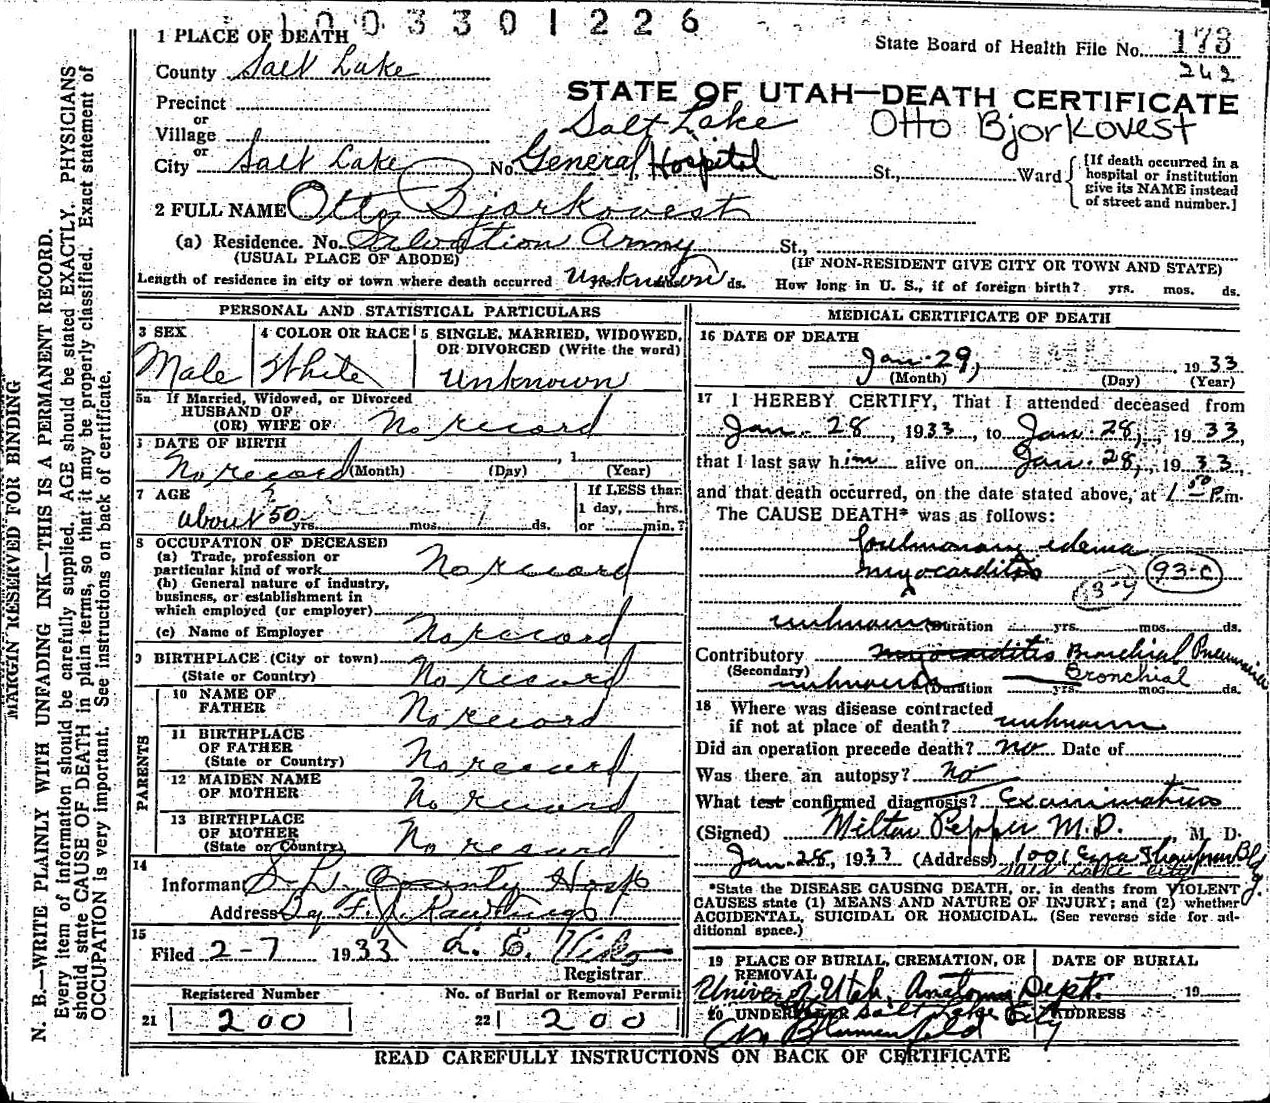 1003301226
State Board of Health File No. 173
262
1 PLACE OF DEATH
County Salt Lake
STATE OF UTAH—DEATH CERTIFICATE
Precinct
or
Village
Salt Lake
Otto Bjorkovest
or
City Salt Lake No. General Hospital St., Ward
[If death occurred in a
hospital or institution
give its NAME instead
of street and number.]
2 FULL NAME Otto Bjorkovest
(a) Residence. No. Salvation Army St.,
(USUAL PLACE OF ABODE)
(IF NON-RESIDENT GIVE CITY OR TOWN AND STATE)
Length of residence in city or town where death occurred unknown ds. How long in U. S., if of foreign birth? yrs. mos. ds.
PERSONAL AND STATISTICAL PARTICULARS
3 SEX
Male
4 COLOR OR RACE
White
5 SINGLE, MARRIED, WIDOWED,
OR DIVORCED (Write the word)
Unknown
5a If Married, Widowed, or Divorced
HUSBAND OF
(OR) WIFE OF No record
6 DATE OF BIRTH
No record (Month) (Day) , 1 (Year)
7 AGE
?
about 50 yrs. mos. ds.
If LESS than
1 day, hrs.
or min.?
8 OCCUPATION OF DECEASED
(a) Trade, profession or
particular kind of work No record
(b) General nature of industry,
business, or establishment in
which employed (or employer)
(c) Name of Employer No record
9 BIRTHPLACE (City or town)
(State or Country) No record
PARENTS
10 NAME OF
FATHER No record
11 BIRTHPLACE
OF FATHER
(State or Country) No record
12 MAIDEN NAME
OF MOTHER No record
13 BIRTHPLACE
OF MOTHER
(State or Country) No record
14
Informant S. L. County Hosp
Address By F. J. Rawlings
15
Filed 2-7 1933 L. E.
Registrar
Registered Number
21 200
No. of Burial or Removal Permit
22 200
MEDICAL CERTIFICATE OF DEATH
16 DATE OF DEATH
Jan. 29, , 1933
(Month) (Day) (Year)
17 I HEREBY CERTIFY, That I attended deceased from
Jan. 28, 1933, to Jan. 28, 1933,
that I last saw him alive on Jan. 28, 1933,
and that death occurred, on the date stated above, at 1 50 P.m.
The CAUSE DEATH* was as follows:
pulmonary edema
myocarditis 93-C
unknown (Duration yrs. mos. ds.
Contributory myocarditis Bronchial Pneumonia
(Secondary) Bronchial
unknown (Duration yrs. mos. ds.
18 Where was disease contracted
if not at place of death? unknown
Did an operation precede death? no Date of
Was there an autopsy? No
What test confirmed diagnosis? Examination
(Signed) Milton Pepper M.D. , M. D.
Jan. 28, 1933 (Address) 1001 Ezra Thompson Bldg.
Salt Lake City
*State the DISEASE CAUSING DEATH, or, in deaths from VIOLENT
CAUSES state (1) MEANS AND NATURE OF INJURY; and (2) whether
ACCIDENTAL, SUICIDAL OR HOMICIDAL. (See reverse side for ad-
ditional space.)
19 PLACE OF BURIAL, CREMATION, OR
REMOVAL
DATE OF BURIAL
Univer of Utah, Anatomy Dept. 19
20 UNDERTAKER Salt Lake City ADDRESS
Blumenfeld
READ CAREFULLY INSTRUCTIONS ON BACK OF CERTIFICATE
MARGIN RESERVED FOR BINDING
N. B.—WRITE PLAINLY WITH UNFADING INK—THIS IS A PERMANENT RECORD.
Every item of information should be carefully supplied. AGE should be stated EXACTLY. PHYSICIANS
should state CAUSE OF DEATH in plain terms, so that it may be properly classified. Exact statement of
OCCUPATION is very important. See instructions on back of certificate.